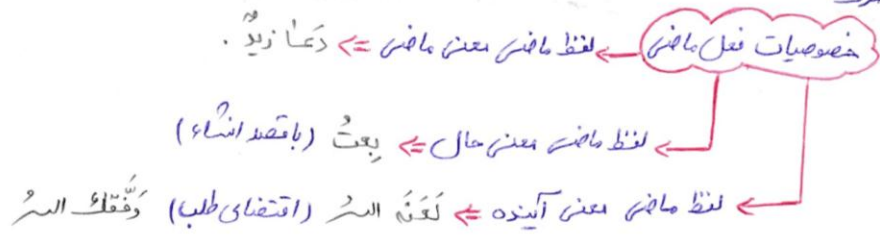 خصوصیات فعل ماضی ← لفظ ماضی معنی ماضی ⇐ دَعَا زیدٌ .
← لفظ ماضی معنی حال ⇐ بِعتُ (باقصد انشاء)
← لفظ ماضی معنی آینده ⇐ لَعَنَهُ اللهُ (اقتضای طلب) وَفَّقَكَ اللهُ